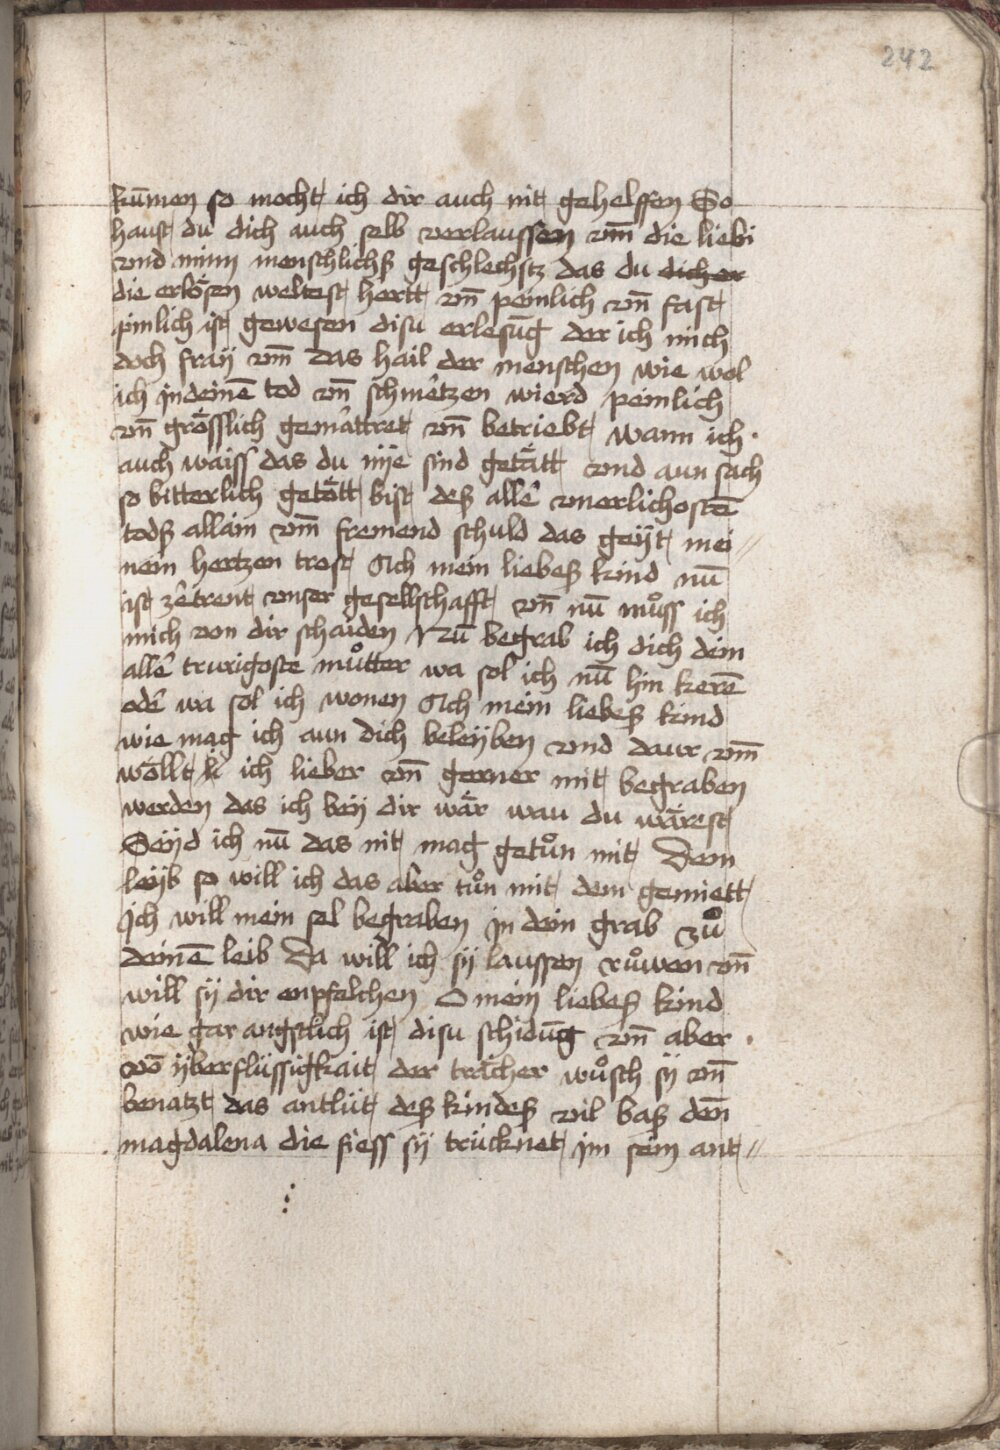 242
kūmen so mocht ich dir auch nit gehelffen So
haust du dich auch selb verlaussen vm̄ die liebi
vnd minn menschlichß geschlechstz das du dich er
die erlösen weltest hertt vn̄ peinlich vn̄ fast
pinlich ist gewesen disu erlesūg der ich mich
doch fraÿ vm̄ das hail der menschen wie wol
ich in deinē tod vn̄ schmertzen wierd peinlich
vn̄ grösslich gemattret vn̄ betriebt wann ich
auch waiss das du nÿe sind getätt vnd aun sach
so bitterlich getött bist deß alle vnerlichostē
todß allain vm̄ fremend schuld das geÿt mei//
nem hertzen trost Ach mein liebeß kind nū
ist zetrent vnser gesellschafft vn̄ nū mu̇ss ich
mich von dir schaiden Nū begrab ich dich dein
alle trurigoste můtter wa sol ich nū hin kerē
ode wa sol ich wonen Ach mein liebeß kind
wie mag ich aun dich beleÿben vnd daur vm̄
wöllt ich lieber vn̄ gerner mit begraben
werden das ich beÿ dir wär wau du wärest
Seÿd ich nū das nit mag getůn mit dem
leÿb so will ich das aber tůn mit dem gemiett
Ich will mein sel begraben in dein grab zů
deinē leib Da will ich sÿ laussen růwen vn̄
will sÿ dir enpfelchen O mein liebeß kind
wie gar angstlich ist disu schidūg vn̄ aber
vō ÿberflüssigkait der trächer wůsch sÿ vn̄
benatzt das antlüt deß kindeß vil baß den̄
magdalena die fiess sÿ trücknet im sein ant//